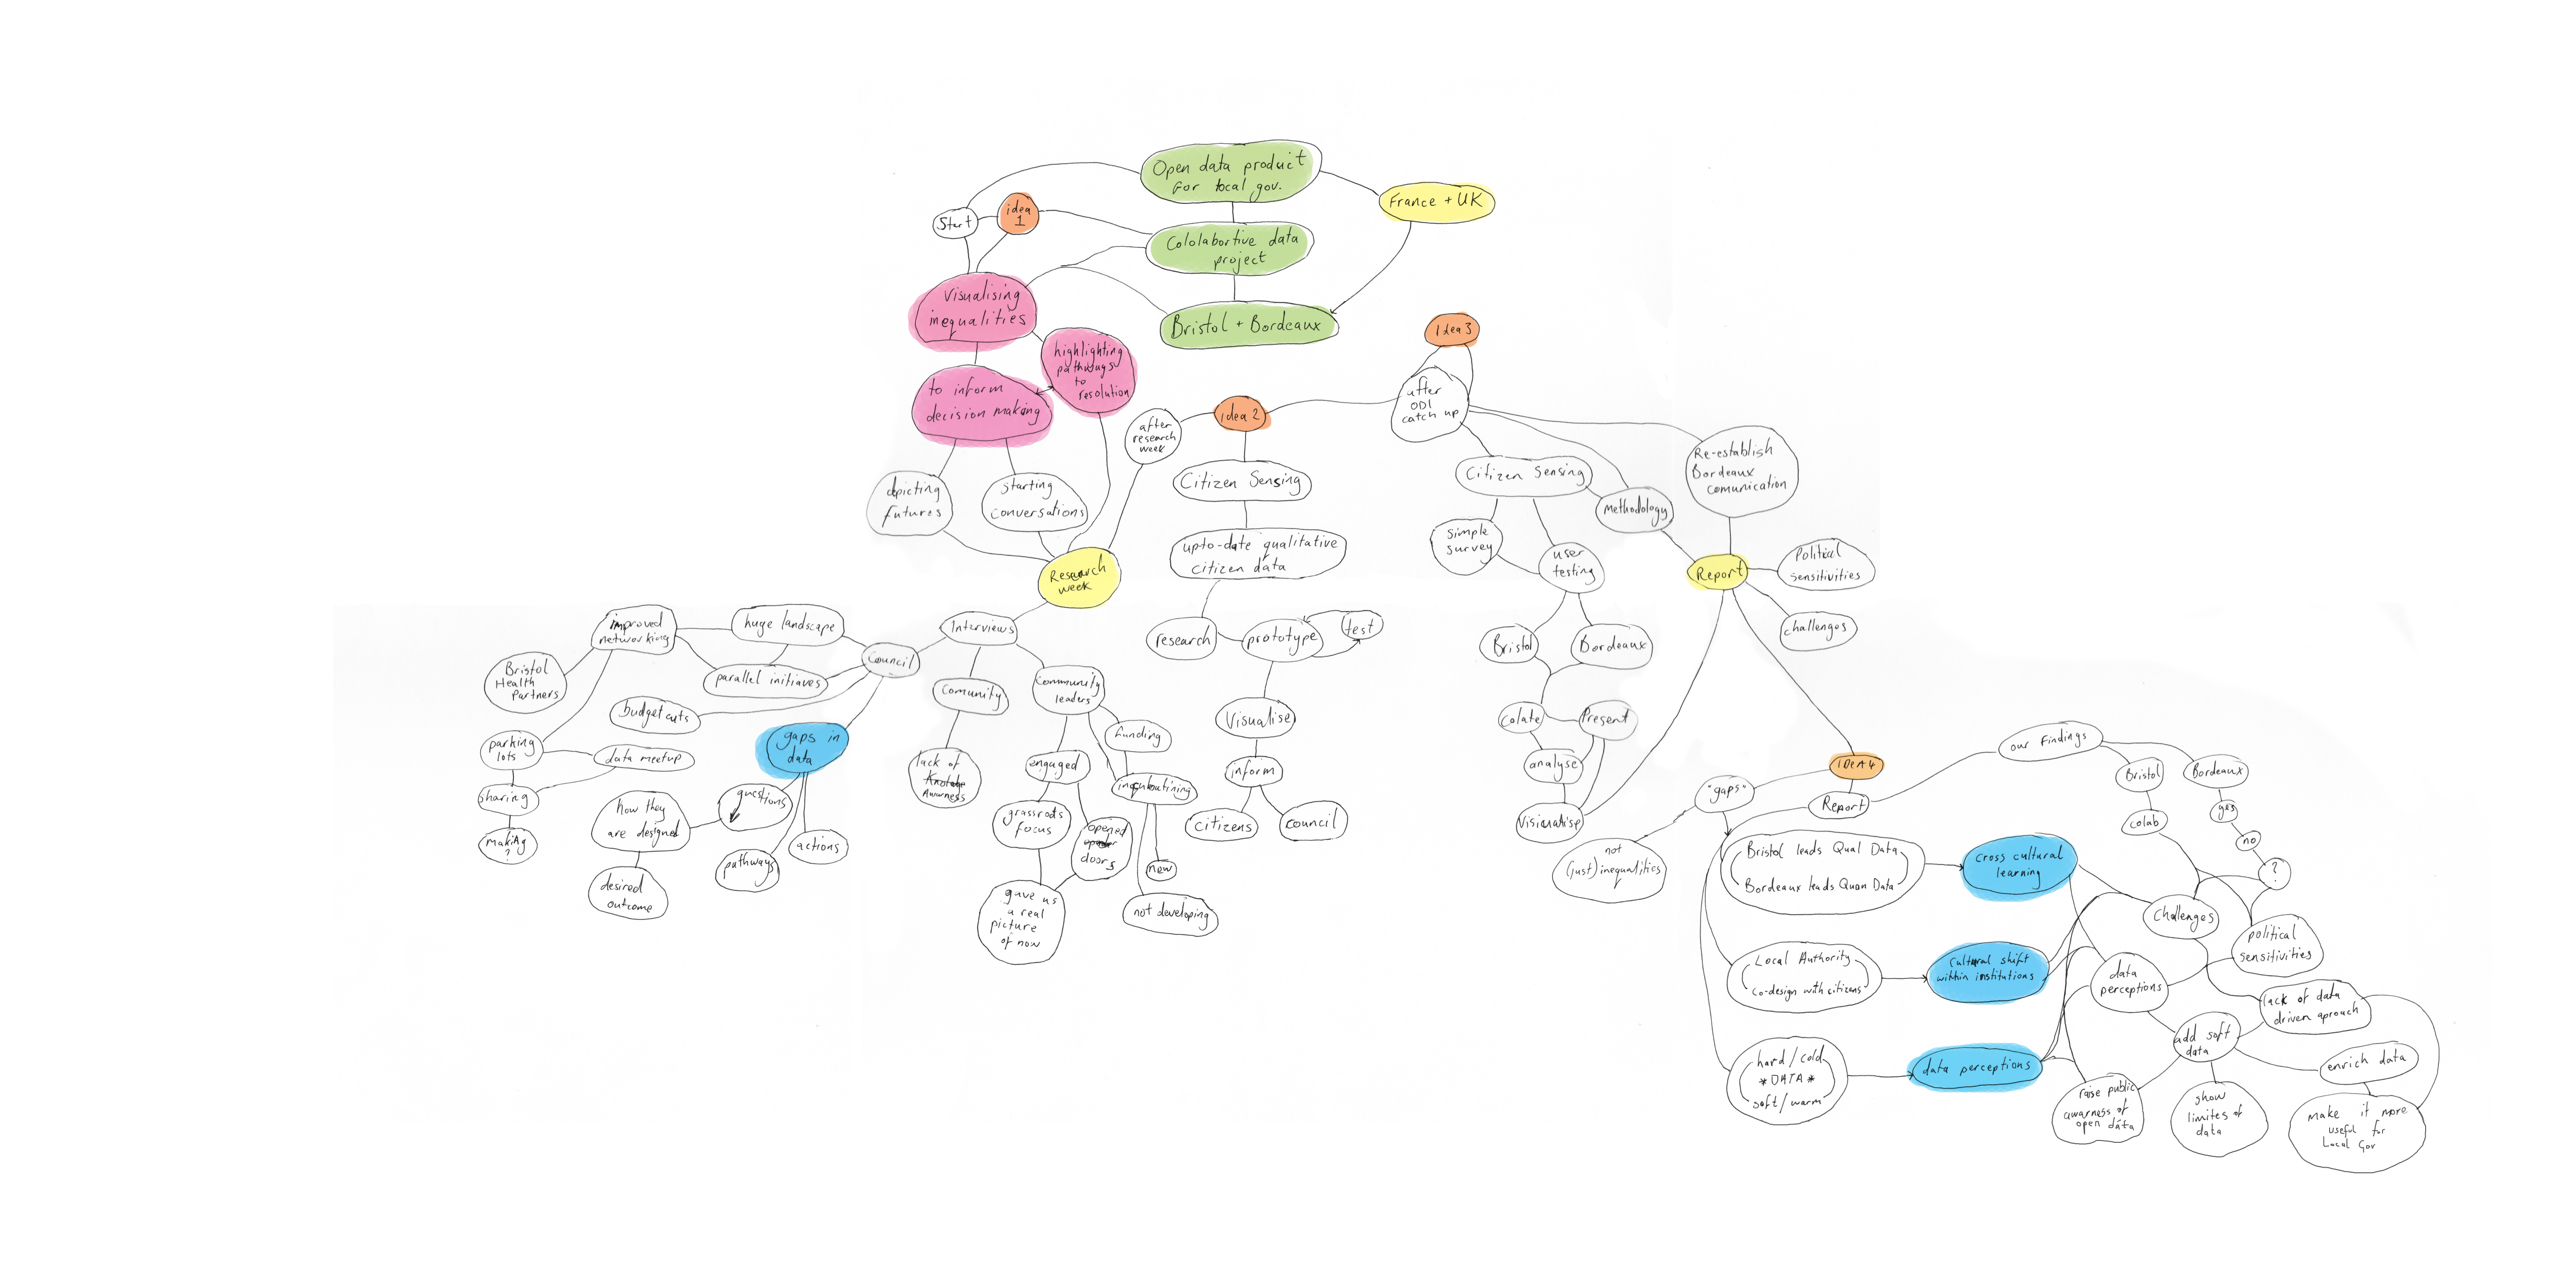 Open data product
For local gov.
France + UK
Start
idea
1
Cololabortive data
project
Bristol + Bordeaux
Visualising
inequalities
highlighting
pathways
to
resolution
to inform
decision making
depicting
futures
starting
conversations
after
research
week
idea 2
Citizen Sensing
upto-date qualitative
citizen data
research
prototype
test
Visualise
inform
citizens
council
Idea 3
after
ODI
catch up
Citizen Sensing
Methodology
Re-establish
Bordeaux
comunication
simple
survey
user
testing
Report
Political
sensitivities
challenges
Bristol
Bordeaux
Colate
Present
analyse
Visiualise
Research
week
Interviews
Council
huge landscape
improved
networking
parallel initiaves
Bristol
Health
Partners
budget cuts
parking
lots
data meetup
sharing
making
?
gaps in
data
questions
how they
are designed
desired
outcome
pathways
actions
Comunity
lack of
Awarness
Community
leaders
funding
engaged
grassroots
focus
opened
doors
gave us
a real
picture
of now
new
not developing
IDEA 4
"gaps"
Report
not
(just) inequalities
our Findings
Bristol
Bordeaux
colab
yes
no
?
Bristol leads Qual Data
Bordeaux leads Quan Data
cross cultural
learning
Challenges
political
sensitivities
Local Authority
Co-design with citizens
Cultural shift
within institutions
data
perceptions
lack of data
driven aproach
add soft
data
hard / cold
* DATA *
soft / warm
data perceptions
enrich data
raise public
awarness of
open data
show
limites of
data
make it more
useful for
Local Gov